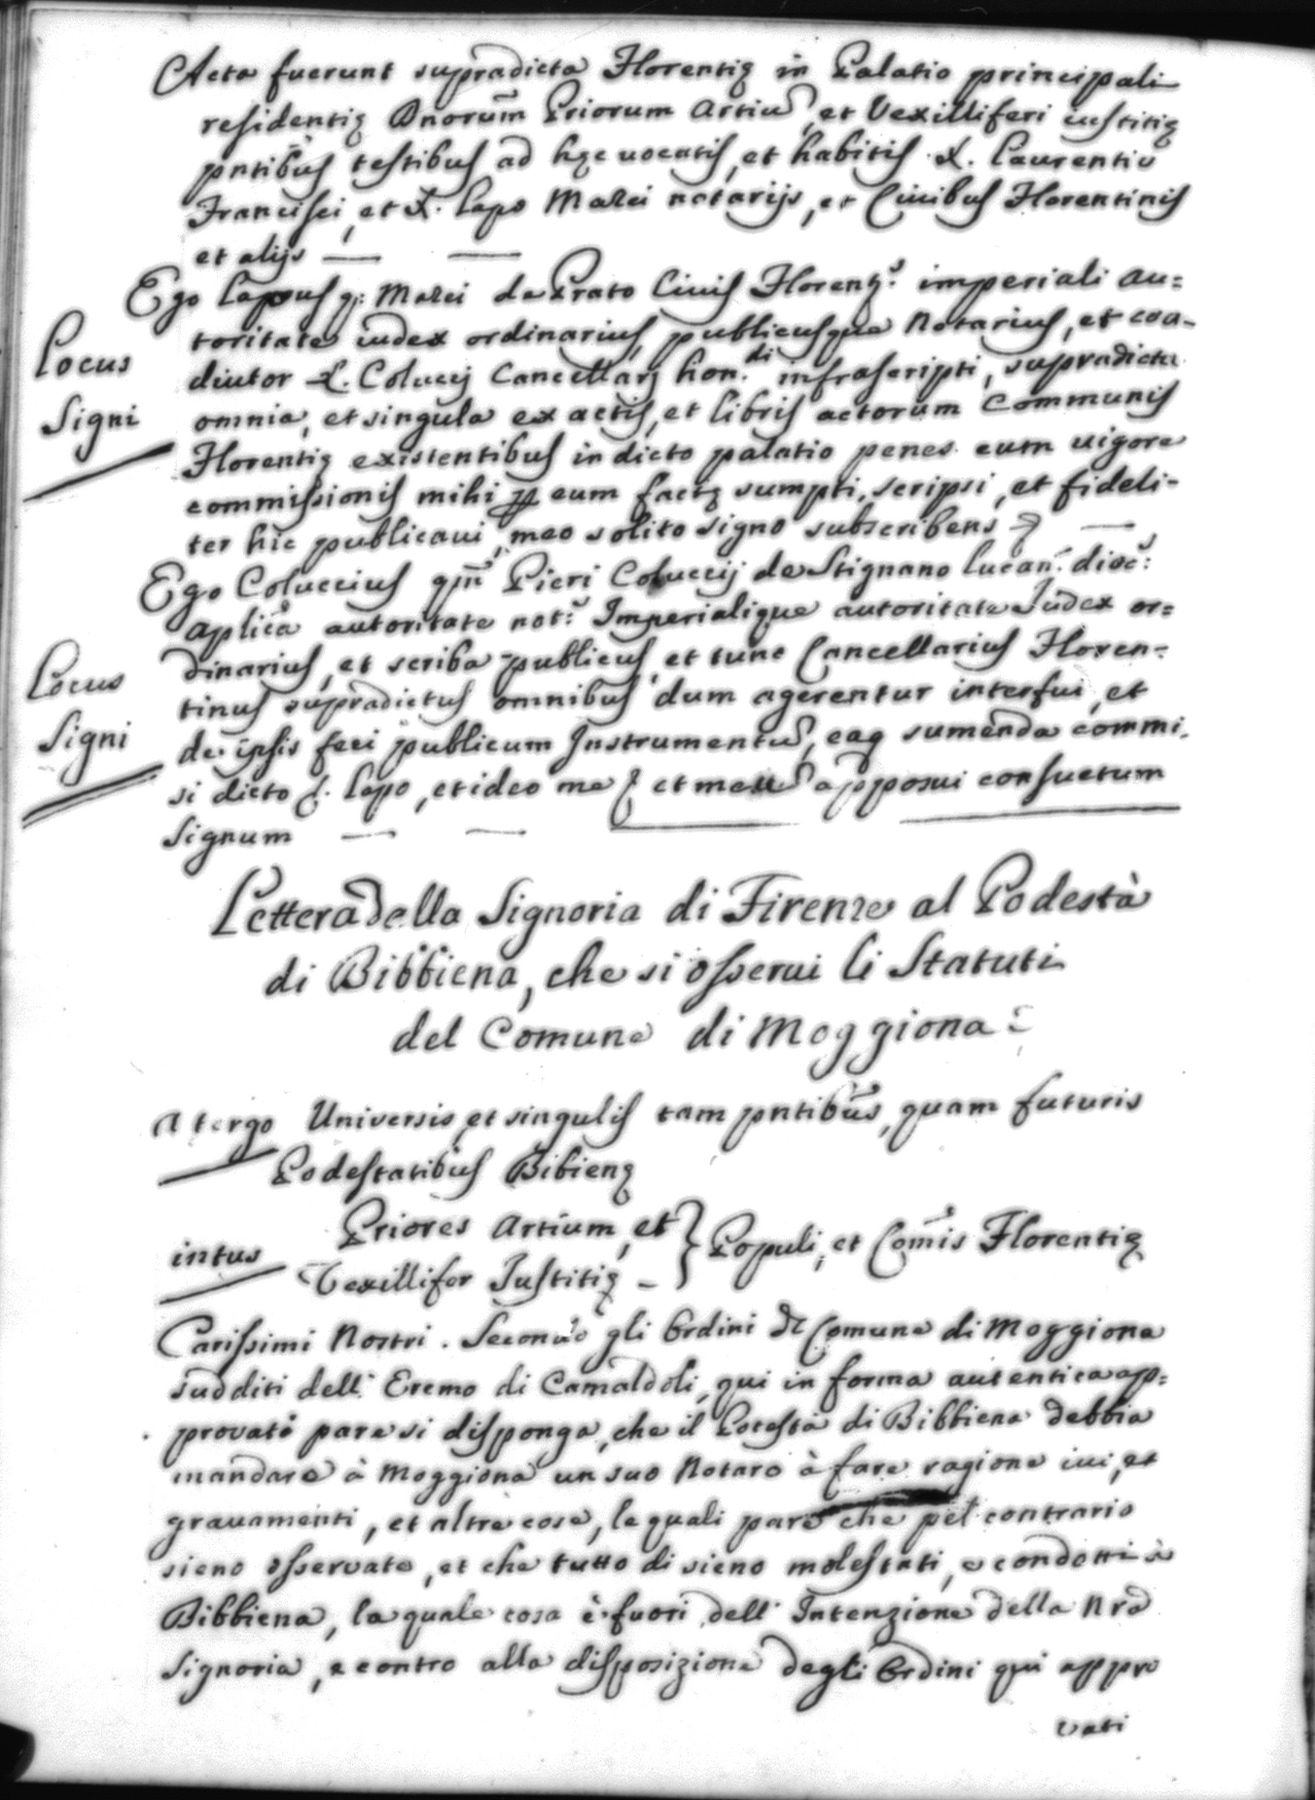 Acta fuerunt supradicta Florentię in Palatio principali
residentię Dnorum̃ Priorum Artiũ, et Vexilliferi iustitię
pntibũs testibus ad hęc uocatis, et habitis S. Laurentio
Francisci, et S. Lapo Mazei notarijs, et Ciuibus Florentinis
et alijs — —
Ego Lapus q: Mazei de Prato Ciuis Florenę: imperiali au=
toritate iudex ordinarius, publicusque Notarius, et coa-
diutor S. Colucij Cancellarij hon.di infrascripti, supradicta
omnia, et singula ex actis, et libris actorum Communis
Florentię existentibus in dicto palatio penes eum uigore
commissionis mihi ꝑ eum factę sumpti, scripsi, et fideli-
ter hic publicaui, meo solito signo subscribens —
Locus
Signi
Ego Coluccius qm̃ Pieri Coluccij de Stignano Lucan: dioc:
aplicã autoritate not: Imperialique autoritate Judex or=
dinarius, et scriba publicus, et tunc Cancellarius Floren-
tinus supradictus omnibus dum agerentur interfui, et
de ipsis feci publicum Instrumentũ, eaq sumenda commi-
si dicto S. Lapo, et ideo me et meũ apposui consuetum
Signum — —
Locus
Signi
Lettera della Signoria di Firenze al Podestà
di Bibbiena, che si osserui li Statuti
del Comune di Moggiona:
A tergo Universis, et singulis tam pntibũs, quam futuris
Podestatibus Bibienę
intus Priores Artium, et } Populi, et Comĩs Florentię
Vexillifer Justitię —
Carissimi Nostri. Secondo gli Ordini del Comune di Moggiona
sudditi dell' Eremo di Camaldoli, qui in forma autentica ap=
provato pare si disponga, che il Potestà di Bibbiena debbia
mandare à Moggiona un suo Notaro à fare ragione iui, et
grauamenti, et altre cose, le quali pare che pel contrario
sieno osservate, et che tutto di sieno molestati, e condotti à
Bibbiena, la quale cosa è fuori dell' Intenzione della Nra
Signoria, e contro alla disposizione degli Ordini qui appro
vati